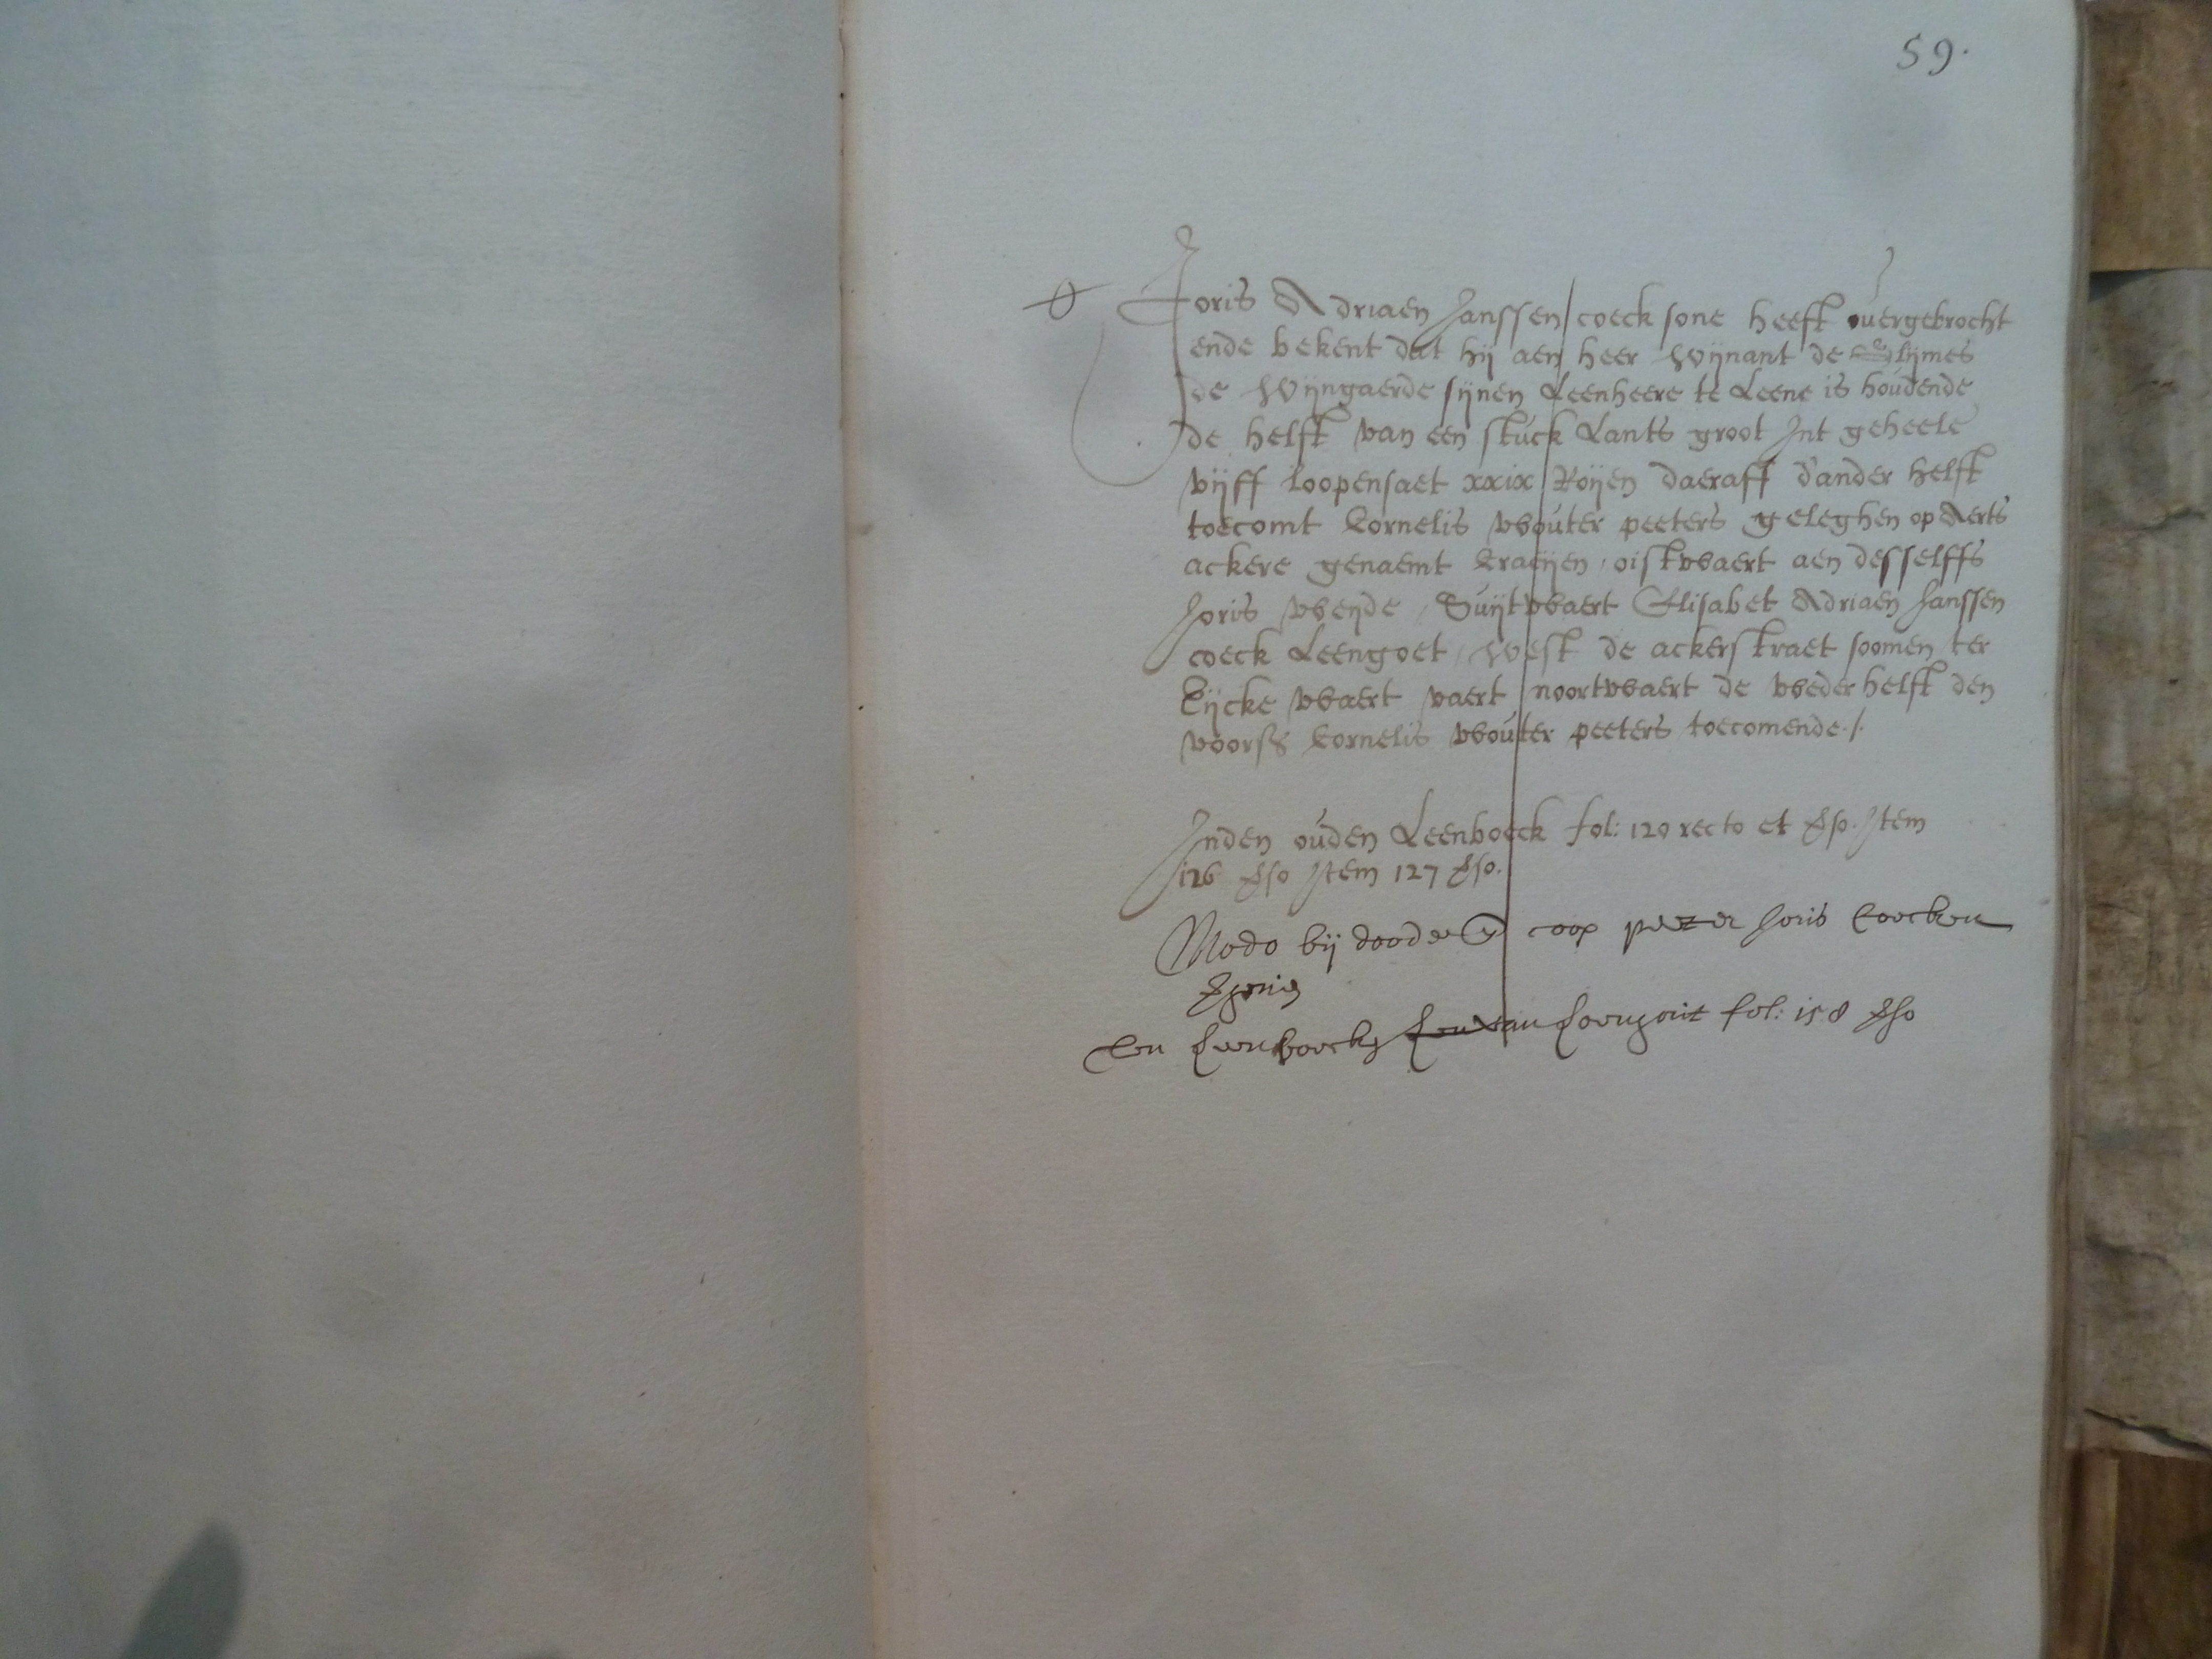 59.
Joris Adriaen Janssen coeck sone heeft overgebrocht
ende bekent dat hij aen heer Wijnant de Glijmes
de Wijngaerde sijnen Leenheere te Leene is houdende
de helft van een stuck Lants groot Int geheele
vijff loopensaet xxix Roijen daeraff d'ander helft
toecomt Cornelis Wouter peeters geleghen op Aerts
ackere genaemt Craeijen, oistwaert aen desselffs
Joris weijde, Suijtwaert Elisabet Adriaen Janssen
coeck Leengoet, West de ackerstraet soomen ter
Eijcke waert vaert noortwaert de wederhelft den
voors Cornelis Wouter peeters toecomende./.
Inden ouden Leenboeck fol: 120 recto et vso. Item
126 vso Item 127 vso.
Modo bij doode coop peeter Joris Coecken
Leenboeck fol: 158 vso